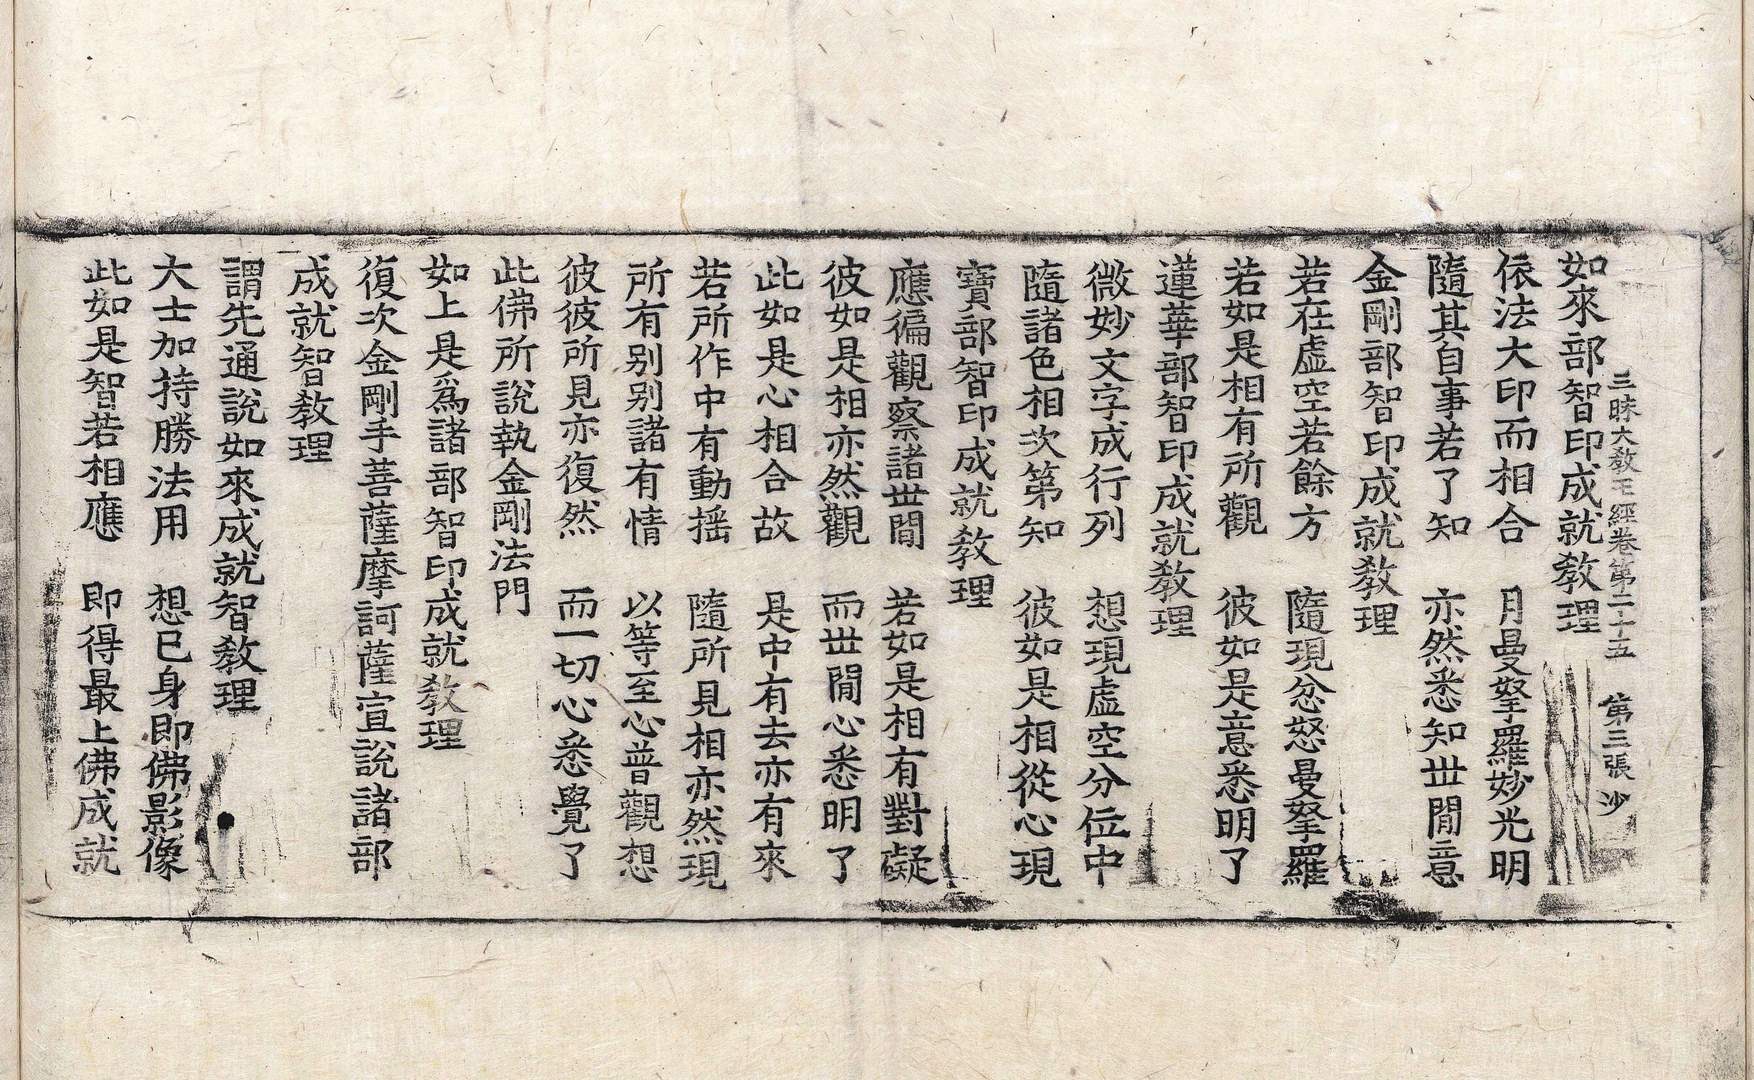 三昧大教王經卷第二十五　第三張　沙
如來部智印成就教理
依法大印而相合　月曼拏羅妙光明
隨其自事若了知　亦然悉知世間意
金剛部智印成就教理
若在虛空若餘方　隨現忿怒曼拏羅
若如是相有所觀　彼如是意悉明了
蓮華部智印成就教理
微妙文字成行列　想現虛空分位中
隨諸色相次第知　彼如是相從心現
寶部智印成就教理
應徧觀察諸世間　若如是相有對礙
彼如是相亦然觀　而世間心悉明了
此如是心相合故　是中有去亦有來
若所作中有動搖　隨所見相亦然現
所有别别諸有情　以等至心普觀想
彼彼所見亦復然　而一切心悉覺了
此佛所說執金剛法門
如上是爲諸部智印成就教理
復次金剛手菩薩摩訶薩宣說諸部
成就智教理
謂先通說如來成就智教理
大士加持勝法用　想已身即佛影像
此如是智若相應　即得最上佛成就